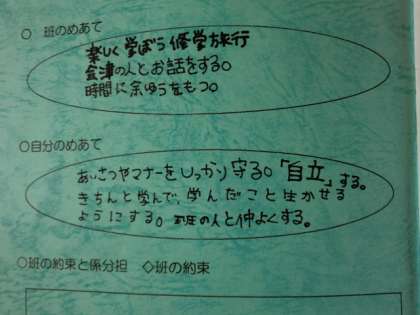 ○ 班のめあて
楽しく学ぼう修学旅行
会津の人とお話をする。
時間に余ゆうをもつ。
○自分のめあて
あいさつやマナーをしっかり守る。「自立」する。
きちんと学んで、学んだこと生かせる
ようにする。班の人と仲よくする。
○班の約束と係分担 ◇班の約束